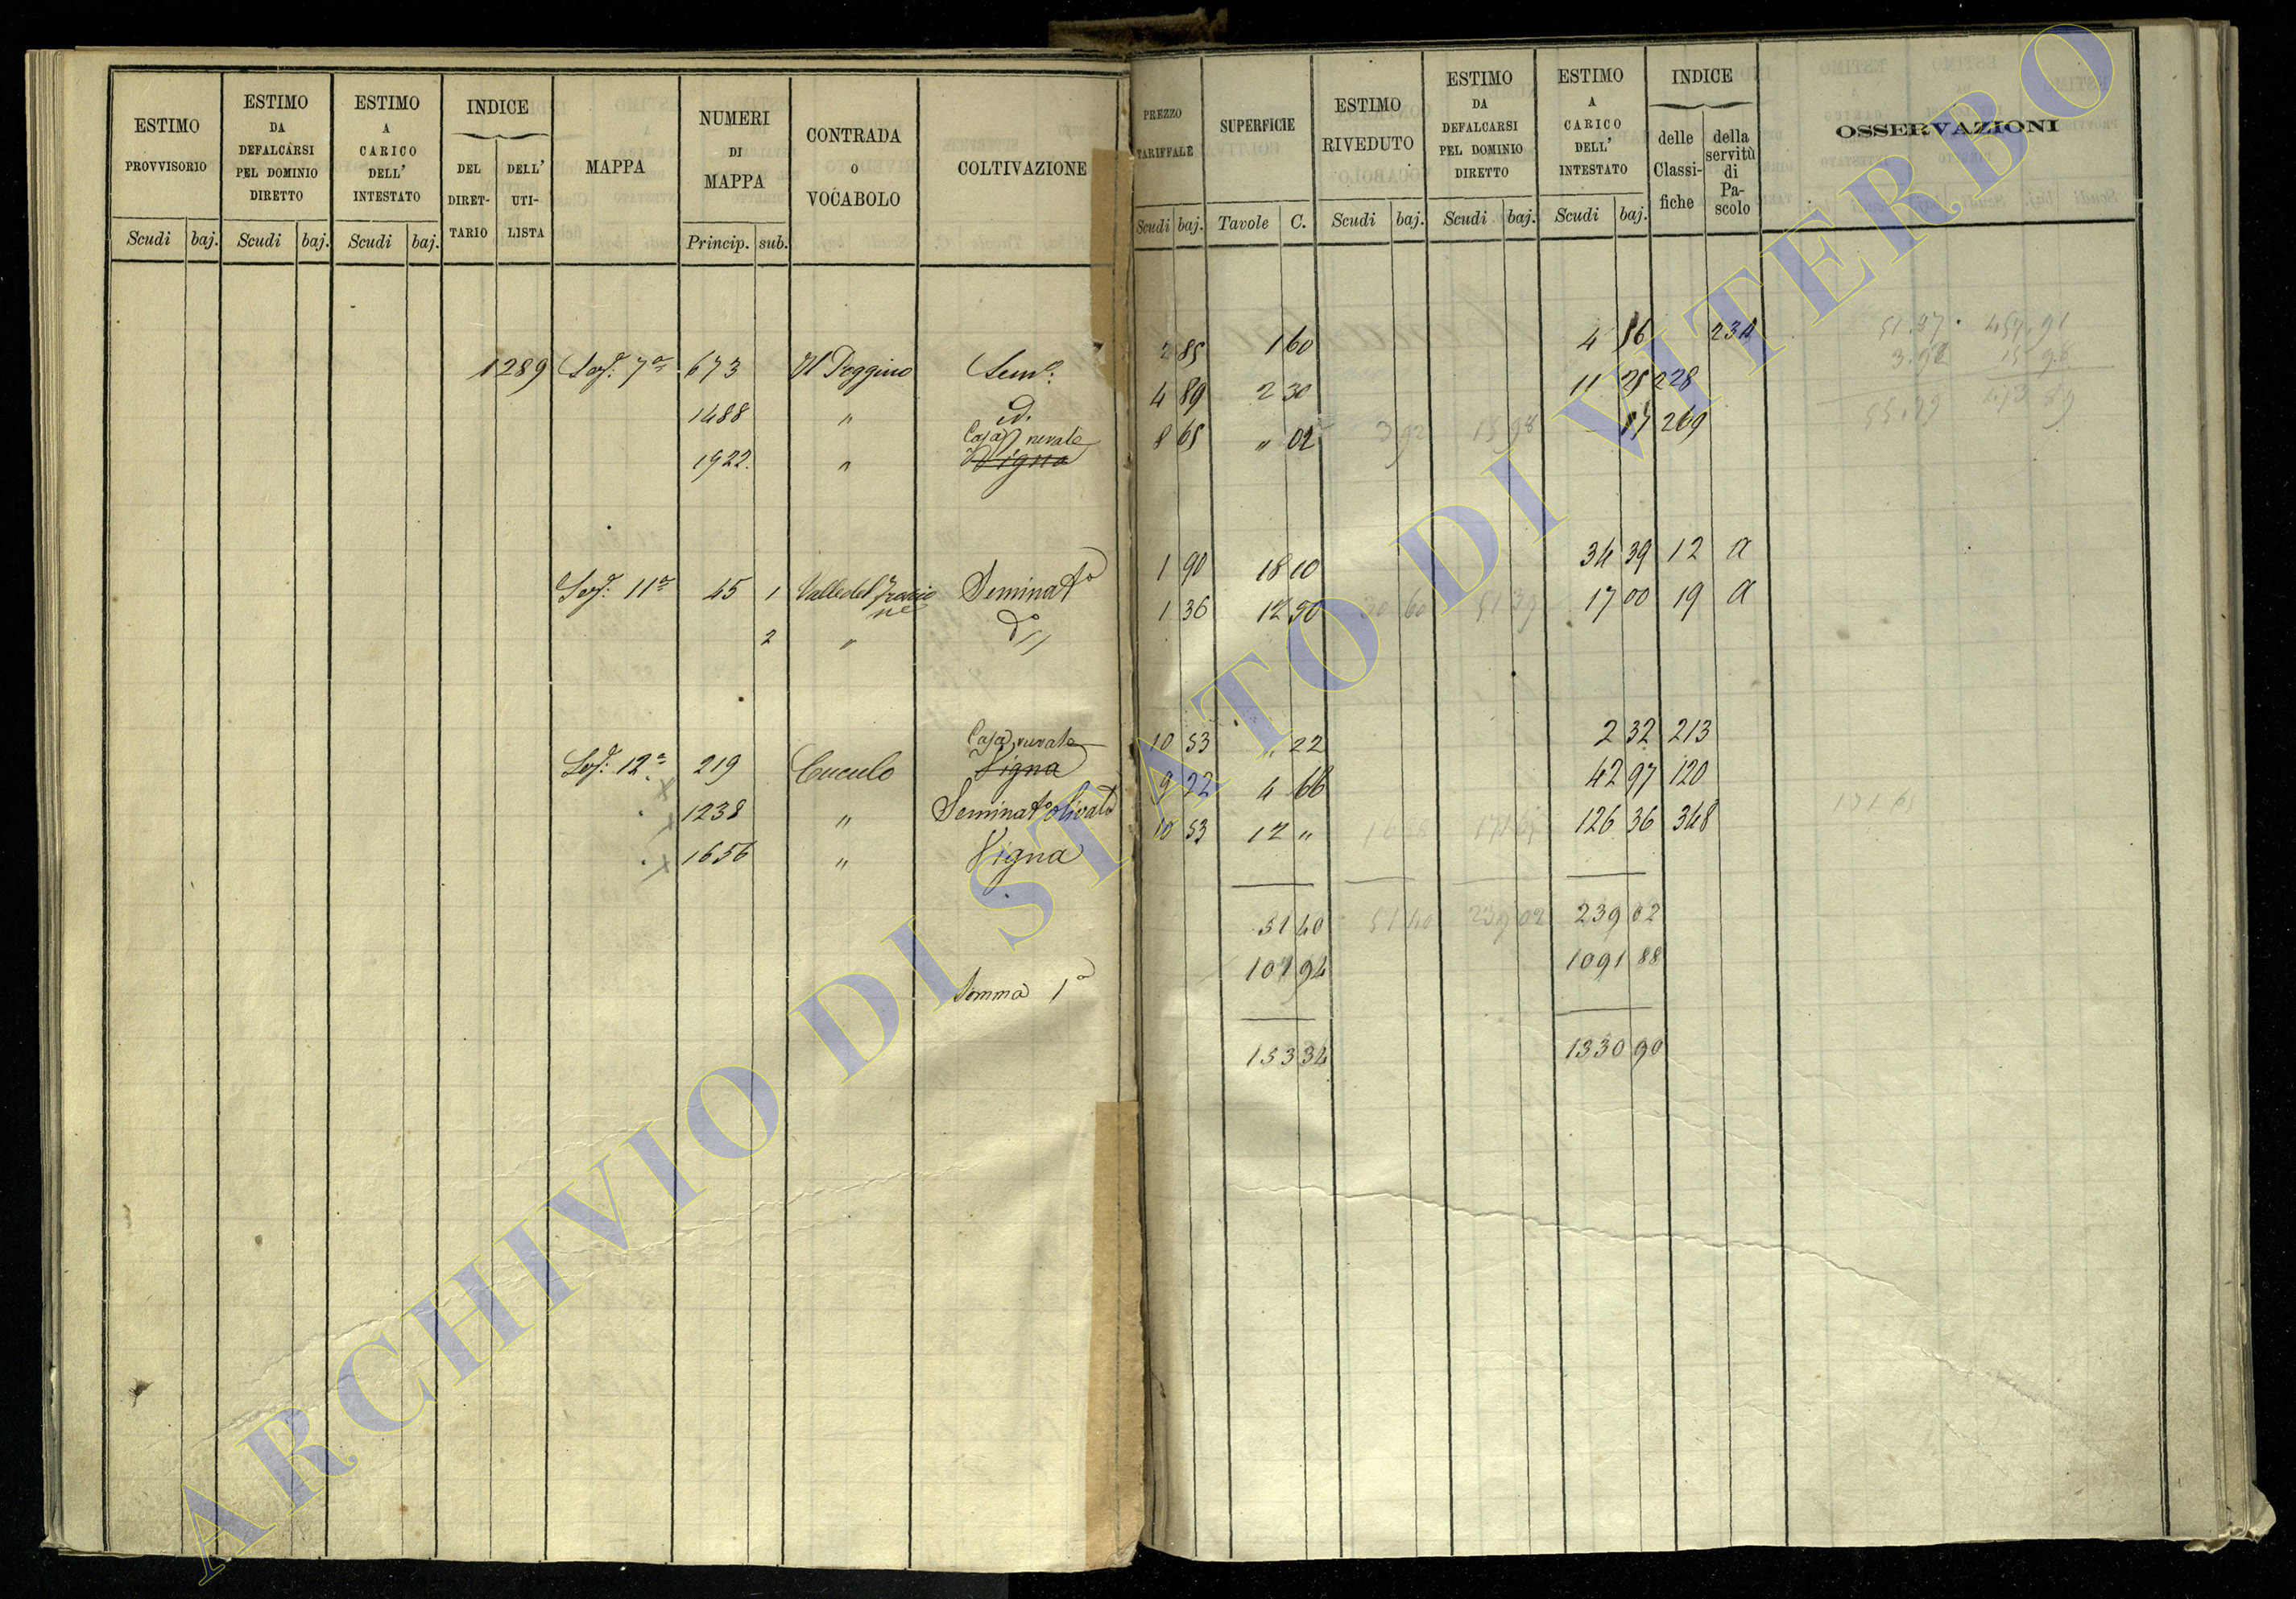 ESTIMO PROVVISORIO
ESTIMO DA DEFALCARSI PEL DOMINIO DIRETTO
ESTIMO A CARICO DELL' INTESTATO
INDICE
DEL DIRET-TARIO
DELL' UTI-LISTA
MAPPA
NUMERI DI MAPPA
CONTRADA o VOCABOLO
COLTIVAZIONE
Scudi baj. Scudi baj. Scudi baj. Princip. sub.
PREZZO TARIFFALE
SUPERFICIE
ESTIMO RIVEDUTO
ESTIMO DA DEFALCARSI PEL DOMINIO DIRETTO
ESTIMO A CARICO DELL' INTESTATO
INDICE
delle Classi-fiche
della servitù di Pa-scolo
OSSERVAZIONI
Scudi baj. Tavole C. Scudi baj. Scudi baj. Scudi baj.
1289 Sez. 7a 673 Il Poggino Sem.o 2 85 1 60 4 56 234
1488 " id. 4 89 2 30 11 25 228
Casa rurale
1922. " Vigna 8 65 " 02 17 269
Sez. 11a 45 1 Valle del Seminato 1 90 18 10 34 39 12 a
2 " do // 1 36 12 50 17 00 19 a
Casa rurale
Sez. 12a 219 Cuculo Vigna 10 53 " 22 2 32 213
1238 " Seminato Olivato 9 22 4 66 42 97 120
1656 " Vigna 10 53 12 " 126 36 348
51 40 51 40 239 02 239 02
Somma 1a 101 94 1091 88
153 34 1330 90
ARCHIVIO DI STATO DI VITERBO